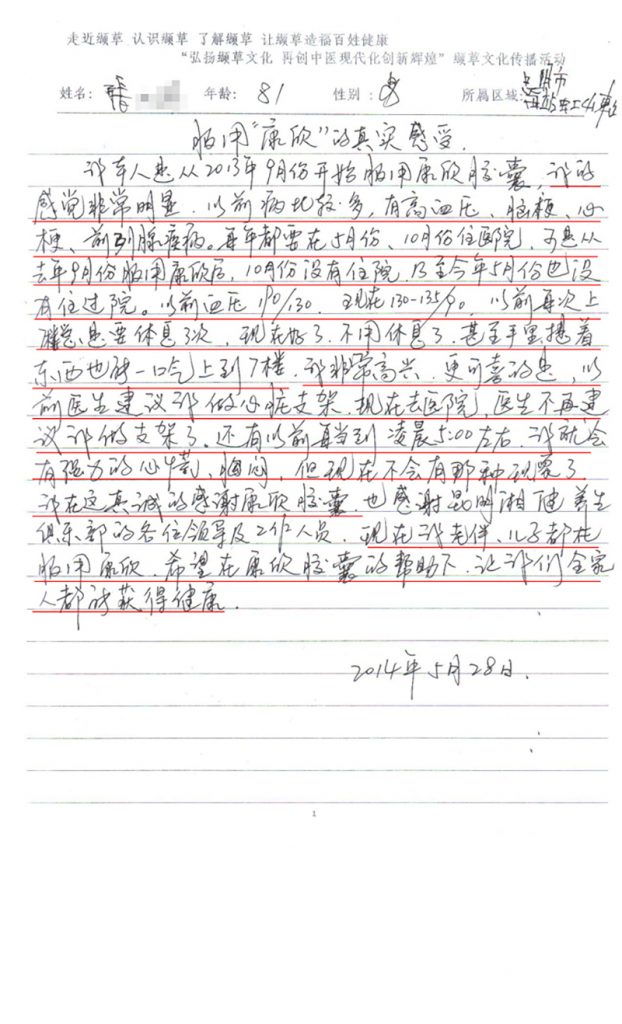 走近缬草 认识缬草 了解缬草 让缬草造福百姓健康
“弘扬缬草文化 再创中医现代化创新辉煌”缬草文化传播活动
姓名: 年龄: 81 性别: 男 所属区域: 昆明市
服用“康欣”的真实感受.
我本人是从2013年9月份开始服用康欣胶囊,我的
感觉非常明显.以前病比较多,有高血压、脑梗、心
梗、前列腺疾病。每年都要在5月份、10月份住医院,可是从
去年9月份服用康欣后,10月份没有住院,乃至今年5月份也没
有住过院。以前血压190/130.现在130-135/90.以前每次上
楼总是要休息3次,现在好了.不用休息了.甚至手里提着
东西也能一口气上到7楼.我非常高兴.更可喜的是,以
前医生建议我做心脏支架.现在去医院,医生不再建
议我做支架了.还有以前每当到凌晨5:00左右.我就会
有强力的心绞,胸闷,但现在不会有那种现象了.
我在这真诚的感谢康欣胶囊.也感谢昆明湘健养生
俱乐部的各位领导及工作人员.现在我老伴、儿子都在
服用康欣.希望在康欣胶囊的帮助下.让我们全家
人都能获得健康.
2014年5月28日.
1